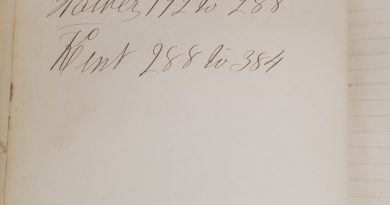 Walker 192 to 288
Kent 288 to 384